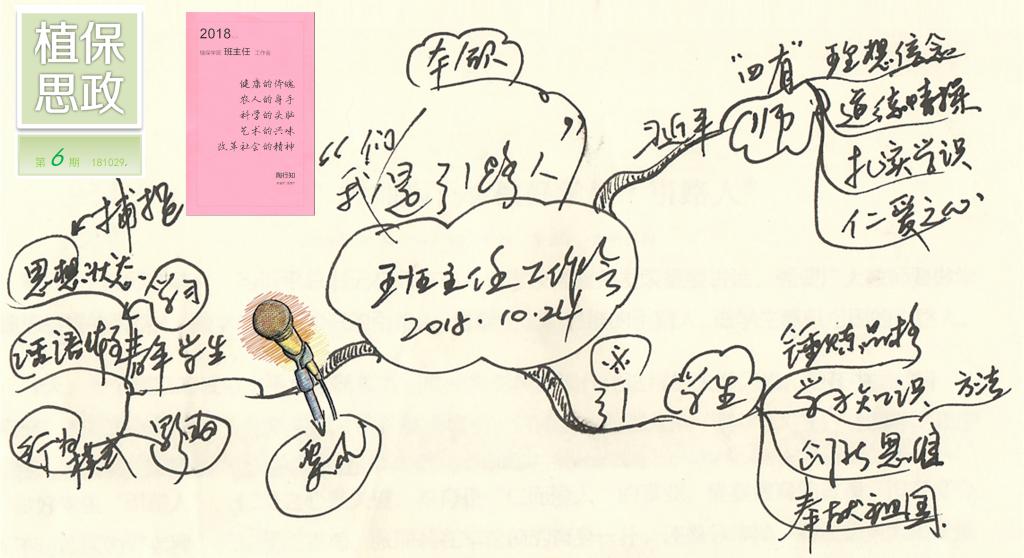 植保
思政
第 6 期 181029.
2018
植保学院 班主任 工作会
健康的体魄
农人的身手
科学的头脑
艺术的兴味
改革社会的精神
陶行知
“我们
引路人”
班主任工作会
2018 10.24
习近平
“四有”
师
理想信念
道德情操
扎实学识
仁爱之心
引
学生
锤炼品格
学习知识 方法
创新思维
奉献祖国
捕捉
思想状态
学习
话语体系
青年学生
行为模式